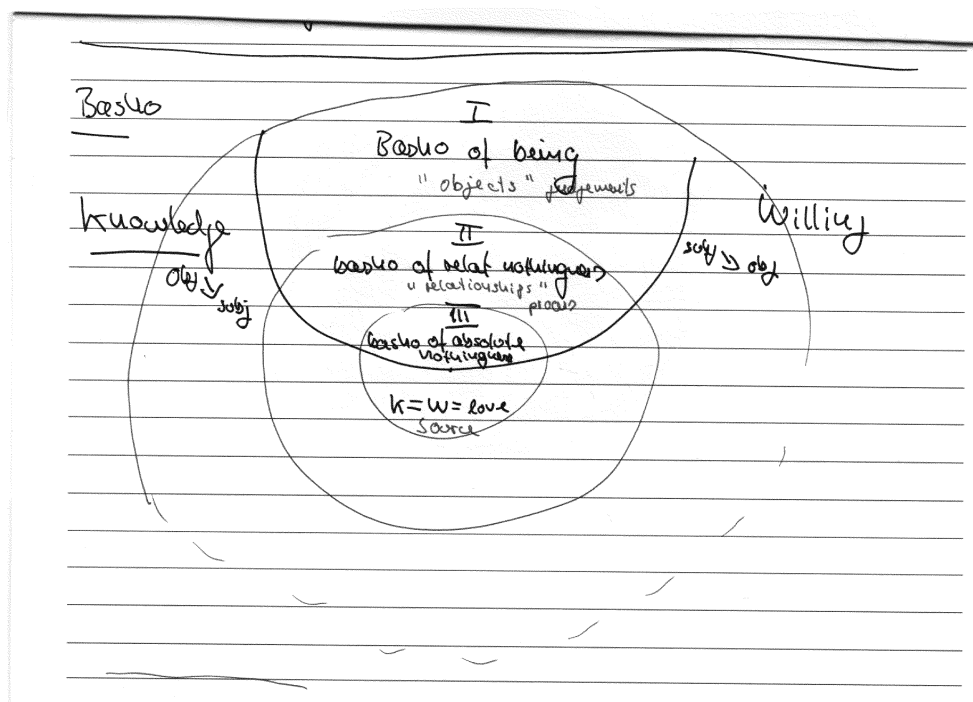 Basho
I
Basho of being
"objects" judgements
Knowledge
obj ↘ subj
Willing
subj ↘ obj
II
basho of relat nothingness
"relationships"
process
III
basho of absolute
nothingness
K = W = love
source